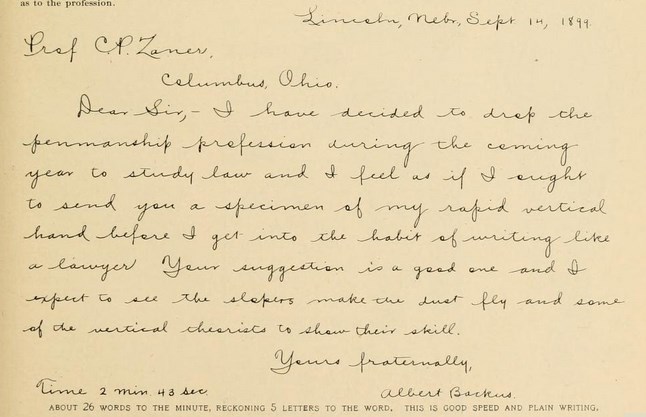 as to the profession.
Lincoln, Nebr, Sept 14, 1899.
Prof C. P. Zaner,
Columbus, Ohio.
Dear Sir,- I have decided to drop the
penmanship profession during the coming
year to study law and I feel as if I ought
to send you a specimen of my rapid vertical
hand before I get into the habit of writing like
a lawyer Your suggestion is a good one and I
expect to see the slopers make the dust fly and some
of the vertical theorists to show their skill.
Yours fraternally,
Time 2 min. 43 sec. Albert Backus.
ABOUT 26 WORDS TO THE MINUTE, RECKONING 5 LETTERS TO THE WORD. THIS IS GOOD SPEED AND PLAIN WRITING.